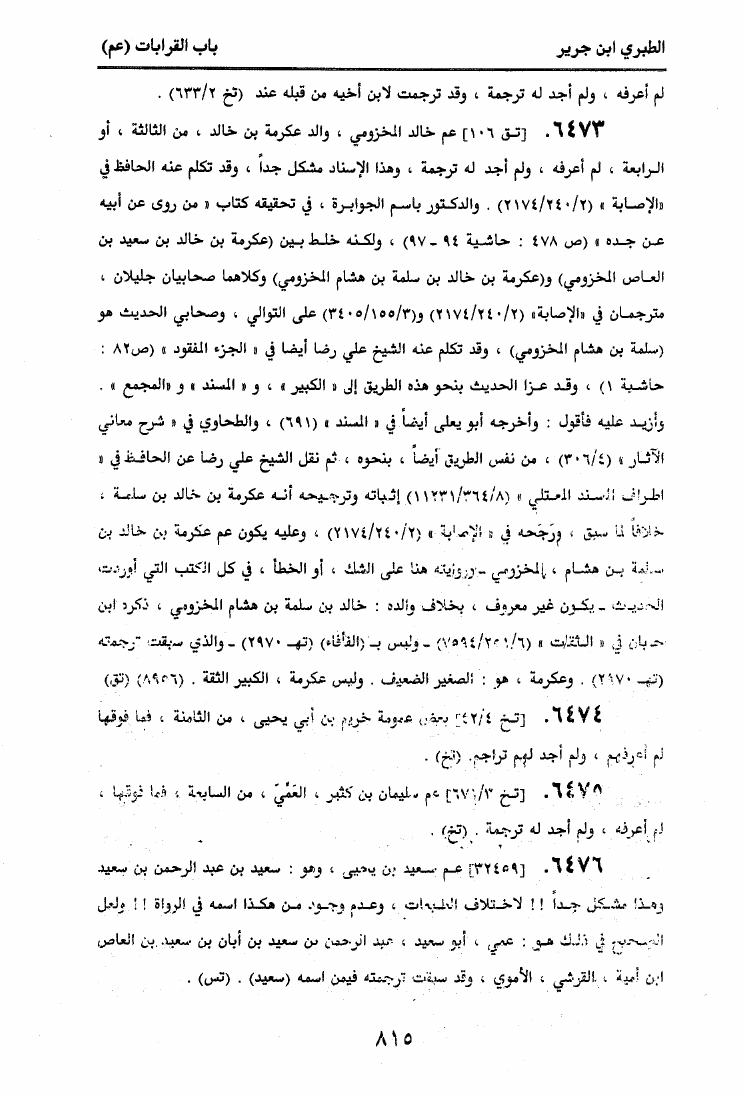 الطبري ابن جرير
باب القرابات (عم)
لم أعرفه ، ولم أجد له ترجمة ، وقد ترجمت لابن أخيه من قبله عند (تخ ٦٣٣/٢) .
٦٤٧٣. [تق ١٠٦] عم خالد المخزومي ، والد عكرمة بن خالد ، من الثالثة ، أو
الرابعة ، لم أعرفه ، ولم أجد له ترجمة ، وهذا الإسناد مشكل جداً ، وقد تكلم عنه الحافظ في
«الإصابة » (٢١٧٤/٢٤٠/٢) . والدكتور باسم الجوابرة ، في تحقيقه كتاب « من روى عن أبيه
عن جده » (ص ٤٧٨ : حاشية ٩٤ -٩٧) ، ولكنه خلط بين (عكرمة بن خالد بن سعيد بن
العاص المخزومي) و(عكرمة بن خالد بن سلمة بن هشام المخزومي) وكلاهما صحابيان جليلان ،
مترجمان في «الإصابة» (٢١٧٤/٢٤٠/٢) و(٣٤٠٥/١٥٥/٣) على التوالي ، وصحابي الحديث هو
(سلمة بن هشام المخزومي) ، وقد تكلم عنه الشيخ علي رضا أيضا في « الجزء المفقود » (ص٨٢ :
حاشية ١) ، وقد عزا الحديث بنحو هذه الطريق إلى « الكبير » ، و « المسند » و «المجمع » .
وأزيد عليه فأقول : وأخرجه أبو يعلى أيضاً في « المسند » (٦٩١) ، والطحاوي في « شرح معاني
الآثار » (٣٠٦/٤) ، من نفس الطريق أيضاً ، بنحوه ، ثم نقل الشيخ علي رضا عن الحافظ في «
اطراف المسند المعتلي » (١١٢٣١/٣٦٤/٨) إثباته وترجيحه أنه عكرمة بن خالد بن سلمة ،
خلافاً لما سبق ، ورَجَحه في « الإصابة » (٢١٧٤/٢٤٠/٢) ، وعليه يكون عم عكرمة بن خالد بن
سلمة بن هشام ، المخزومي -وروايته هنا على الشك ، أو الخطأ ، في كل الكتب التي أوردت
الحديث - يكون غير معروف ، بخلاف والده : خالد بن سلمة بن هشام المخزومي ، ذكره ابن
حبان في « الثقات » (٧٥٩٤/٢٥١/٦) - وليس بـ (الفأفاء) (تهـ ٢٩٧٠) - والذي سبقت ترجمته
(تهـ ٢٩٧٠) . وعكرمة ، هو : الصغير الضعيف . وليس عكرمة ، الكبير الثقة . (٨٩٥٦) (تق)
٦٤٧٤. [تخ ٤٢/٤] بعض عمومة خريم بن أبي يحيى ، من الثامنة ، فما فوقها
لم أعرفهم ، ولم أجد لهم تراجم. (تخ) .
٦٤٧٥. [تخ ٦٧١/٣] عم سليمان بن كثير ، العَمِّيّ ، من السابعة ، فما فوقها ،
لم أعرفه ، ولم أجد له ترجمة . (تخ) .
٦٤٧٦. [٣٢٤٥٩] عم سعيد بن يحيى ، وهو : سعيد بن عبد الرحمن بن سعيد
وهذا مشكل جداً ! ! لاختلاف الطبقات ، وعدم وجود من هكذا اسمه في الرواة ! ! ولعل
الصحيح في ذلك هو : عمي ، أبو سعيد ، عبد الرحمن بن سعيد بن أبان بن سعيد بن العاص
ابن أمية ، القرشي ، الأموي ، وقد سبقت ترجمته فيمن اسمه (سعيد) . (تس) .
٨١٥